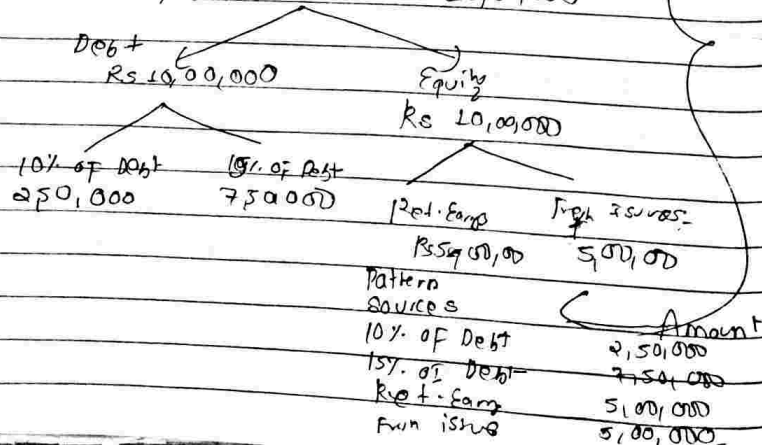 Debt
Rs 10,00,000
Equity
Rs 10,00,000
10% of Debt
250,000
15% of Debt
750000
Ret. Earng
Fresh issues
5,00,00
Pattern
Sources Amount
10% of Debt 2,50,000
15% of Debt 7,50,000
Ret. Earng 5,00,000
issue 5,00,000